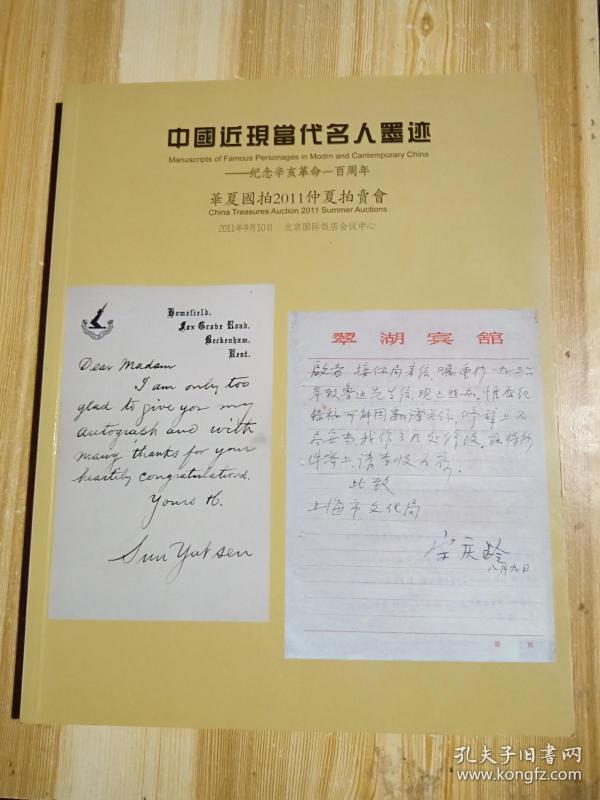 中國近現當代名人墨迹
Manuscripts of Famous Personages in Modrn and Cantemporary China
——纪念辛亥革命一百周年
華夏國拍2011仲夏拍賣會
China Treasures Auction 2011 Summer Auctions
2011年9月10日 北京国际饭店会议中心
Homefield,
Fox Grove Road,
Beckenham,
Kent.
Dear Madam
I am only too
glad to give you my
autograph and with
many thanks for your
heartily congratulations.
Yours &.
Sun Yat Sen
翠湖宾舘
啟者 接你局来信,嘱重抄一九三六
年致鲁迅先生信,现已
此致
上海市文化局
宋庆龄
八月九日
第 页
孔夫子旧书网
www.kongfz.com